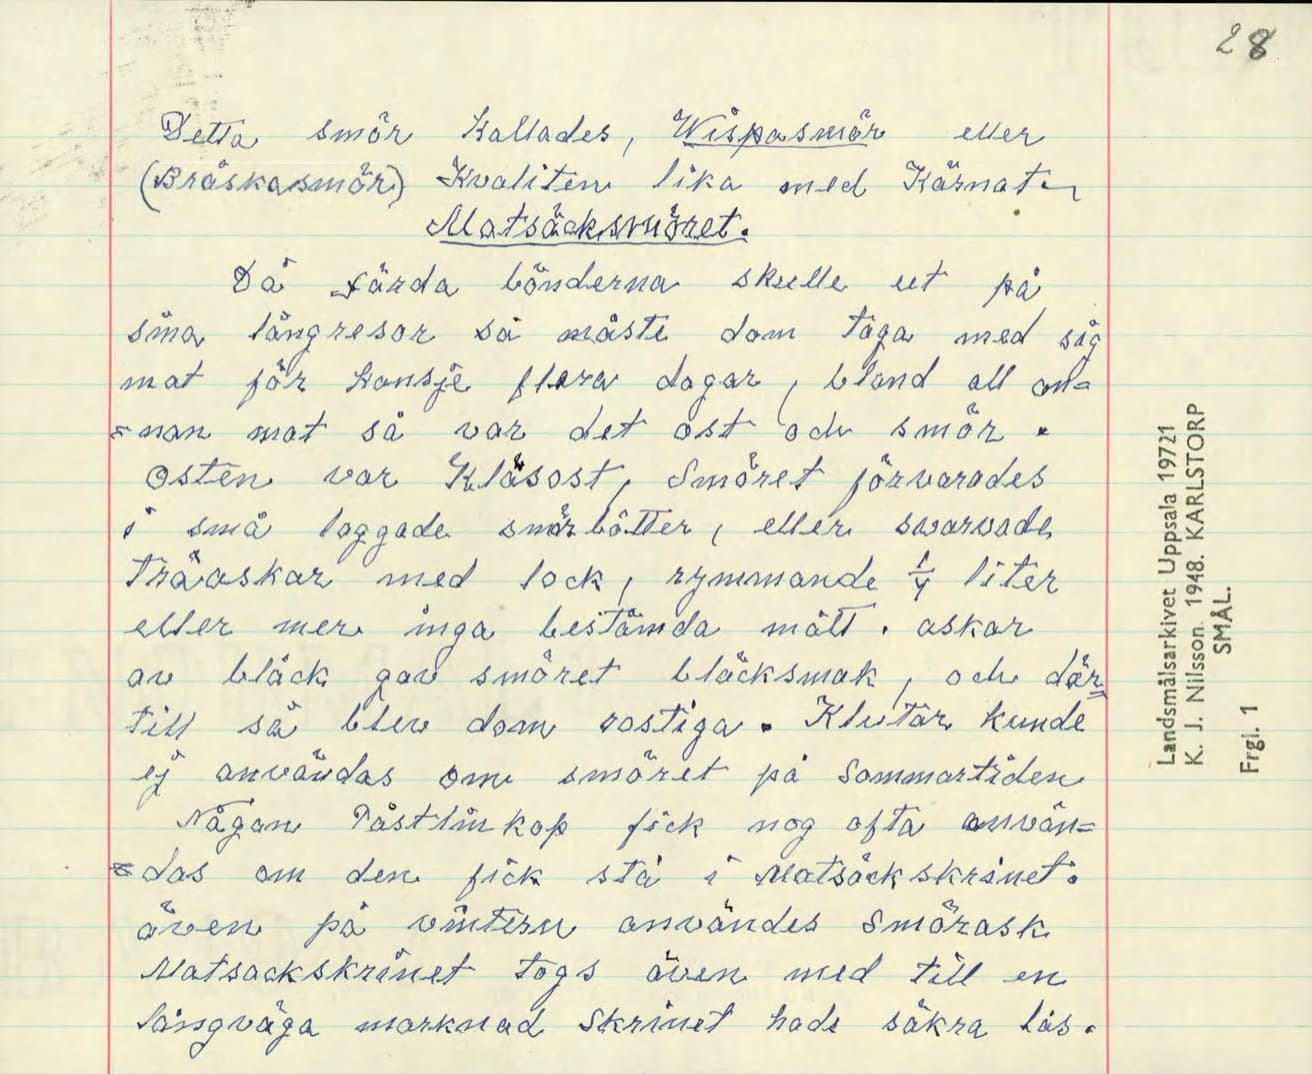 28
Detta smör kallades, Wispasmör eller
(Bråskasmör) Kvaliten lika med Kärnat.
Matsäcksmöret.
Då färda bönderna skulle ut på
sina långresor så måste dom taga med sig
mat för kansje flera dagar, bland all an=
=nan mat så var det ost och smör.
Osten var Klåsost, Smöret förvarades
i små laggade smörbötter, eller svarvade
träaskar med lock, rymmande 1/4 liter
eller mer inga bestämda mått. askar
av bläck gav smöret bläcksmak, och där=
till så blev dom rostiga. Klutar kunde
ej användas om smöret på Sommartiden
Någon Påstlinkop fick nog ofta använ=
=das om den fick stå i Matsäckskrinet.
även på vintern användes Smörask
Matsackskrinet togs även med till en
långväga marknad Skrinet hade säkra lås.
Landsmålsarkivet Uppsala 19721
K. J. Nilsson. 1948. KARLSTORP
SMÅL.
Frgl. 1